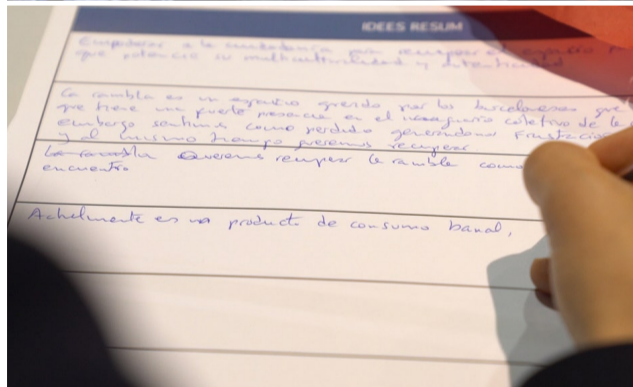 IDEES RESUM
Empoderar a la ciudadanía para recuperar el espacio
que potencie su multiculturalidad y autenticidad
La rambla es un espacio querido por los barceloneses que
que tiene una fuerte presencia en el imaginario colectivo de la
embargo sentimos como perdido generandonos frustación
y al mismo tiempo queremos recuperar.
La rambla Queremos recuperar la rambla como
encuentro
Actualmente es un producto de consumo banal,